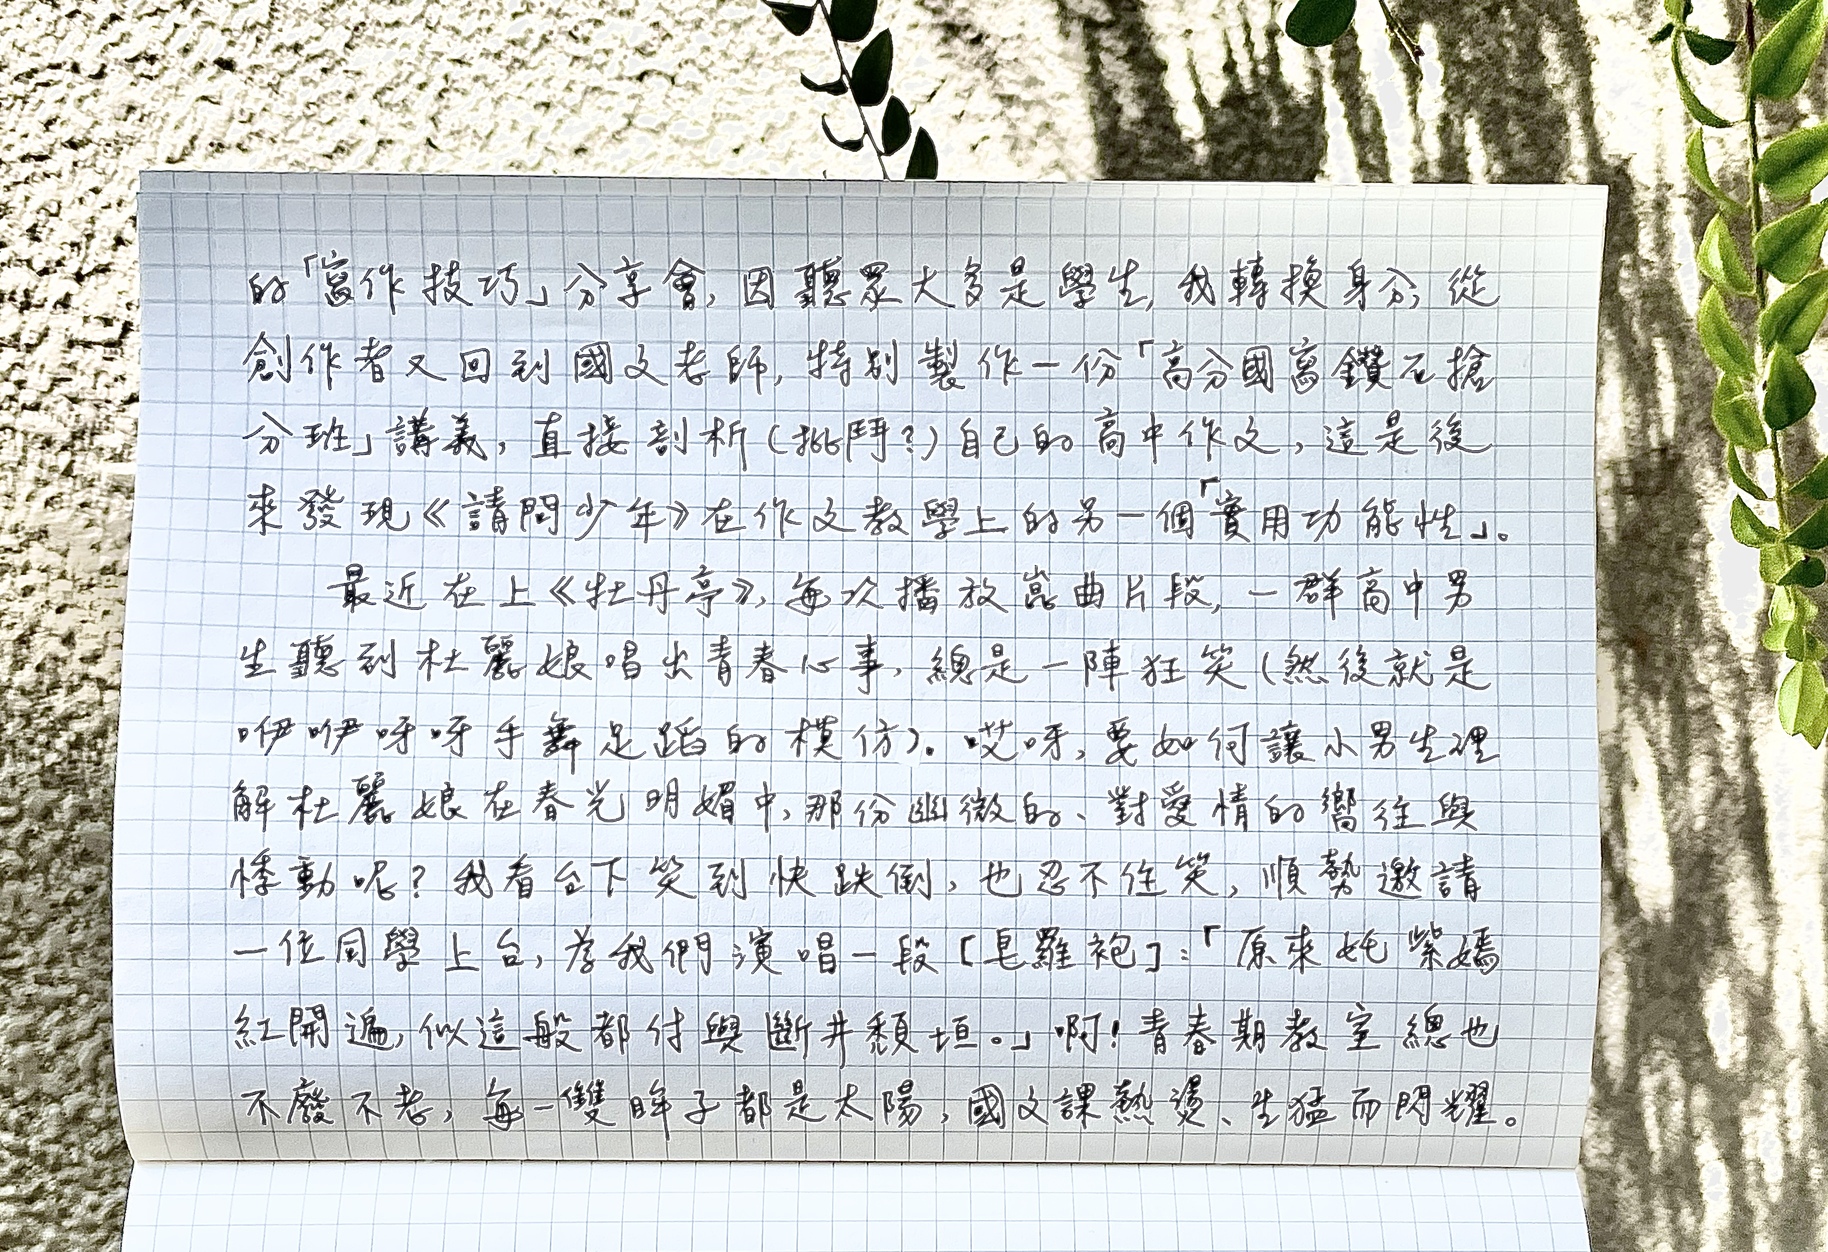 的「寫作技巧」分享會,因聽眾大多是學生,我轉換身分,從
創作者又回到國文老師,特別製作一份「高分國寫鑽石搶
分班」講義,直接剖析(挑鬥?)自己的高中作文,這是後
來發現《請問少年》在作文教學上的另一個「實用功能性」。
最近在上《牡丹亭》,每次播放崑曲片段,一群高中男
生聽到杜麗娘唱出青春心事,總是一陣狂笑(然後就是
咿咿呀呀手舞足蹈的模仿)。哎呀,要如何讓小男生理
解杜麗娘在春光明媚中,那份幽微的、對愛情的嚮往與
悸動呢?我看台下笑到快跌倒,也忍不住笑,順勢邀請
一位同學上台,為我們演唱一段[皂羅袍]:「原來奼紫嫣
紅開遍,似這般都付與斷井頹垣。」啊!青春期教室總也
不廢不老,每一雙眸子都是太陽,國文課熱燙、生猛而閃耀。